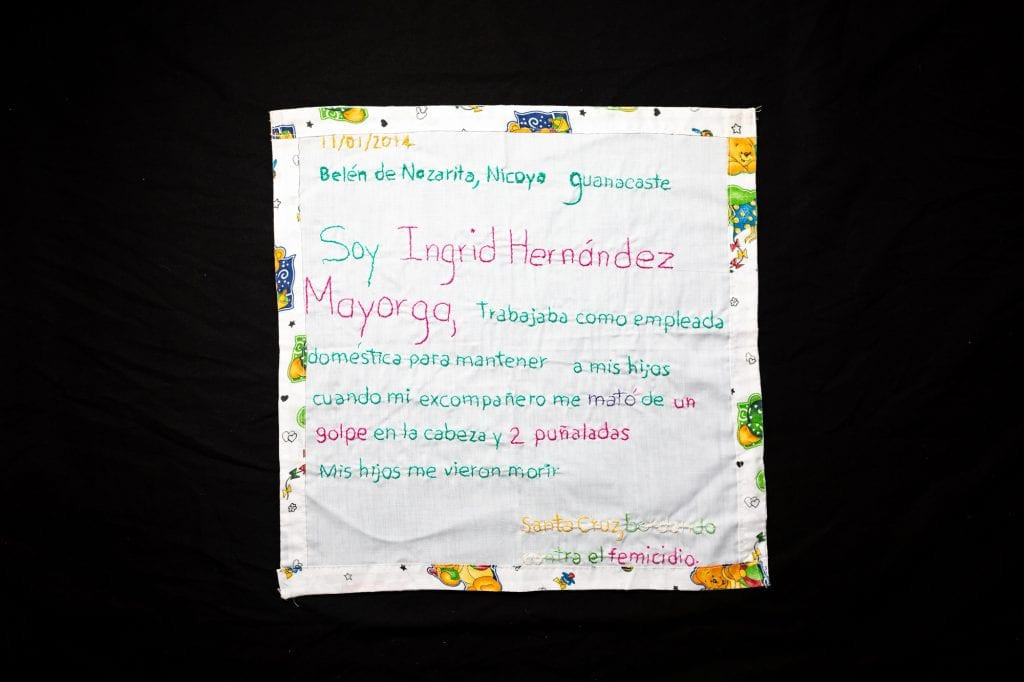 11/01/2014
Belén de Nozarita, Nicoya guanacaste
Soy Ingrid Hernández
Mayorga, Trabajaba como empleada
doméstica para mantener a mis hijos
cuando mi excompañero me mató de un
golpe en la cabeza y 2 puñaladas
Mis hijos me vieron morir
Santa Cruz bordando
contra el femicidio.